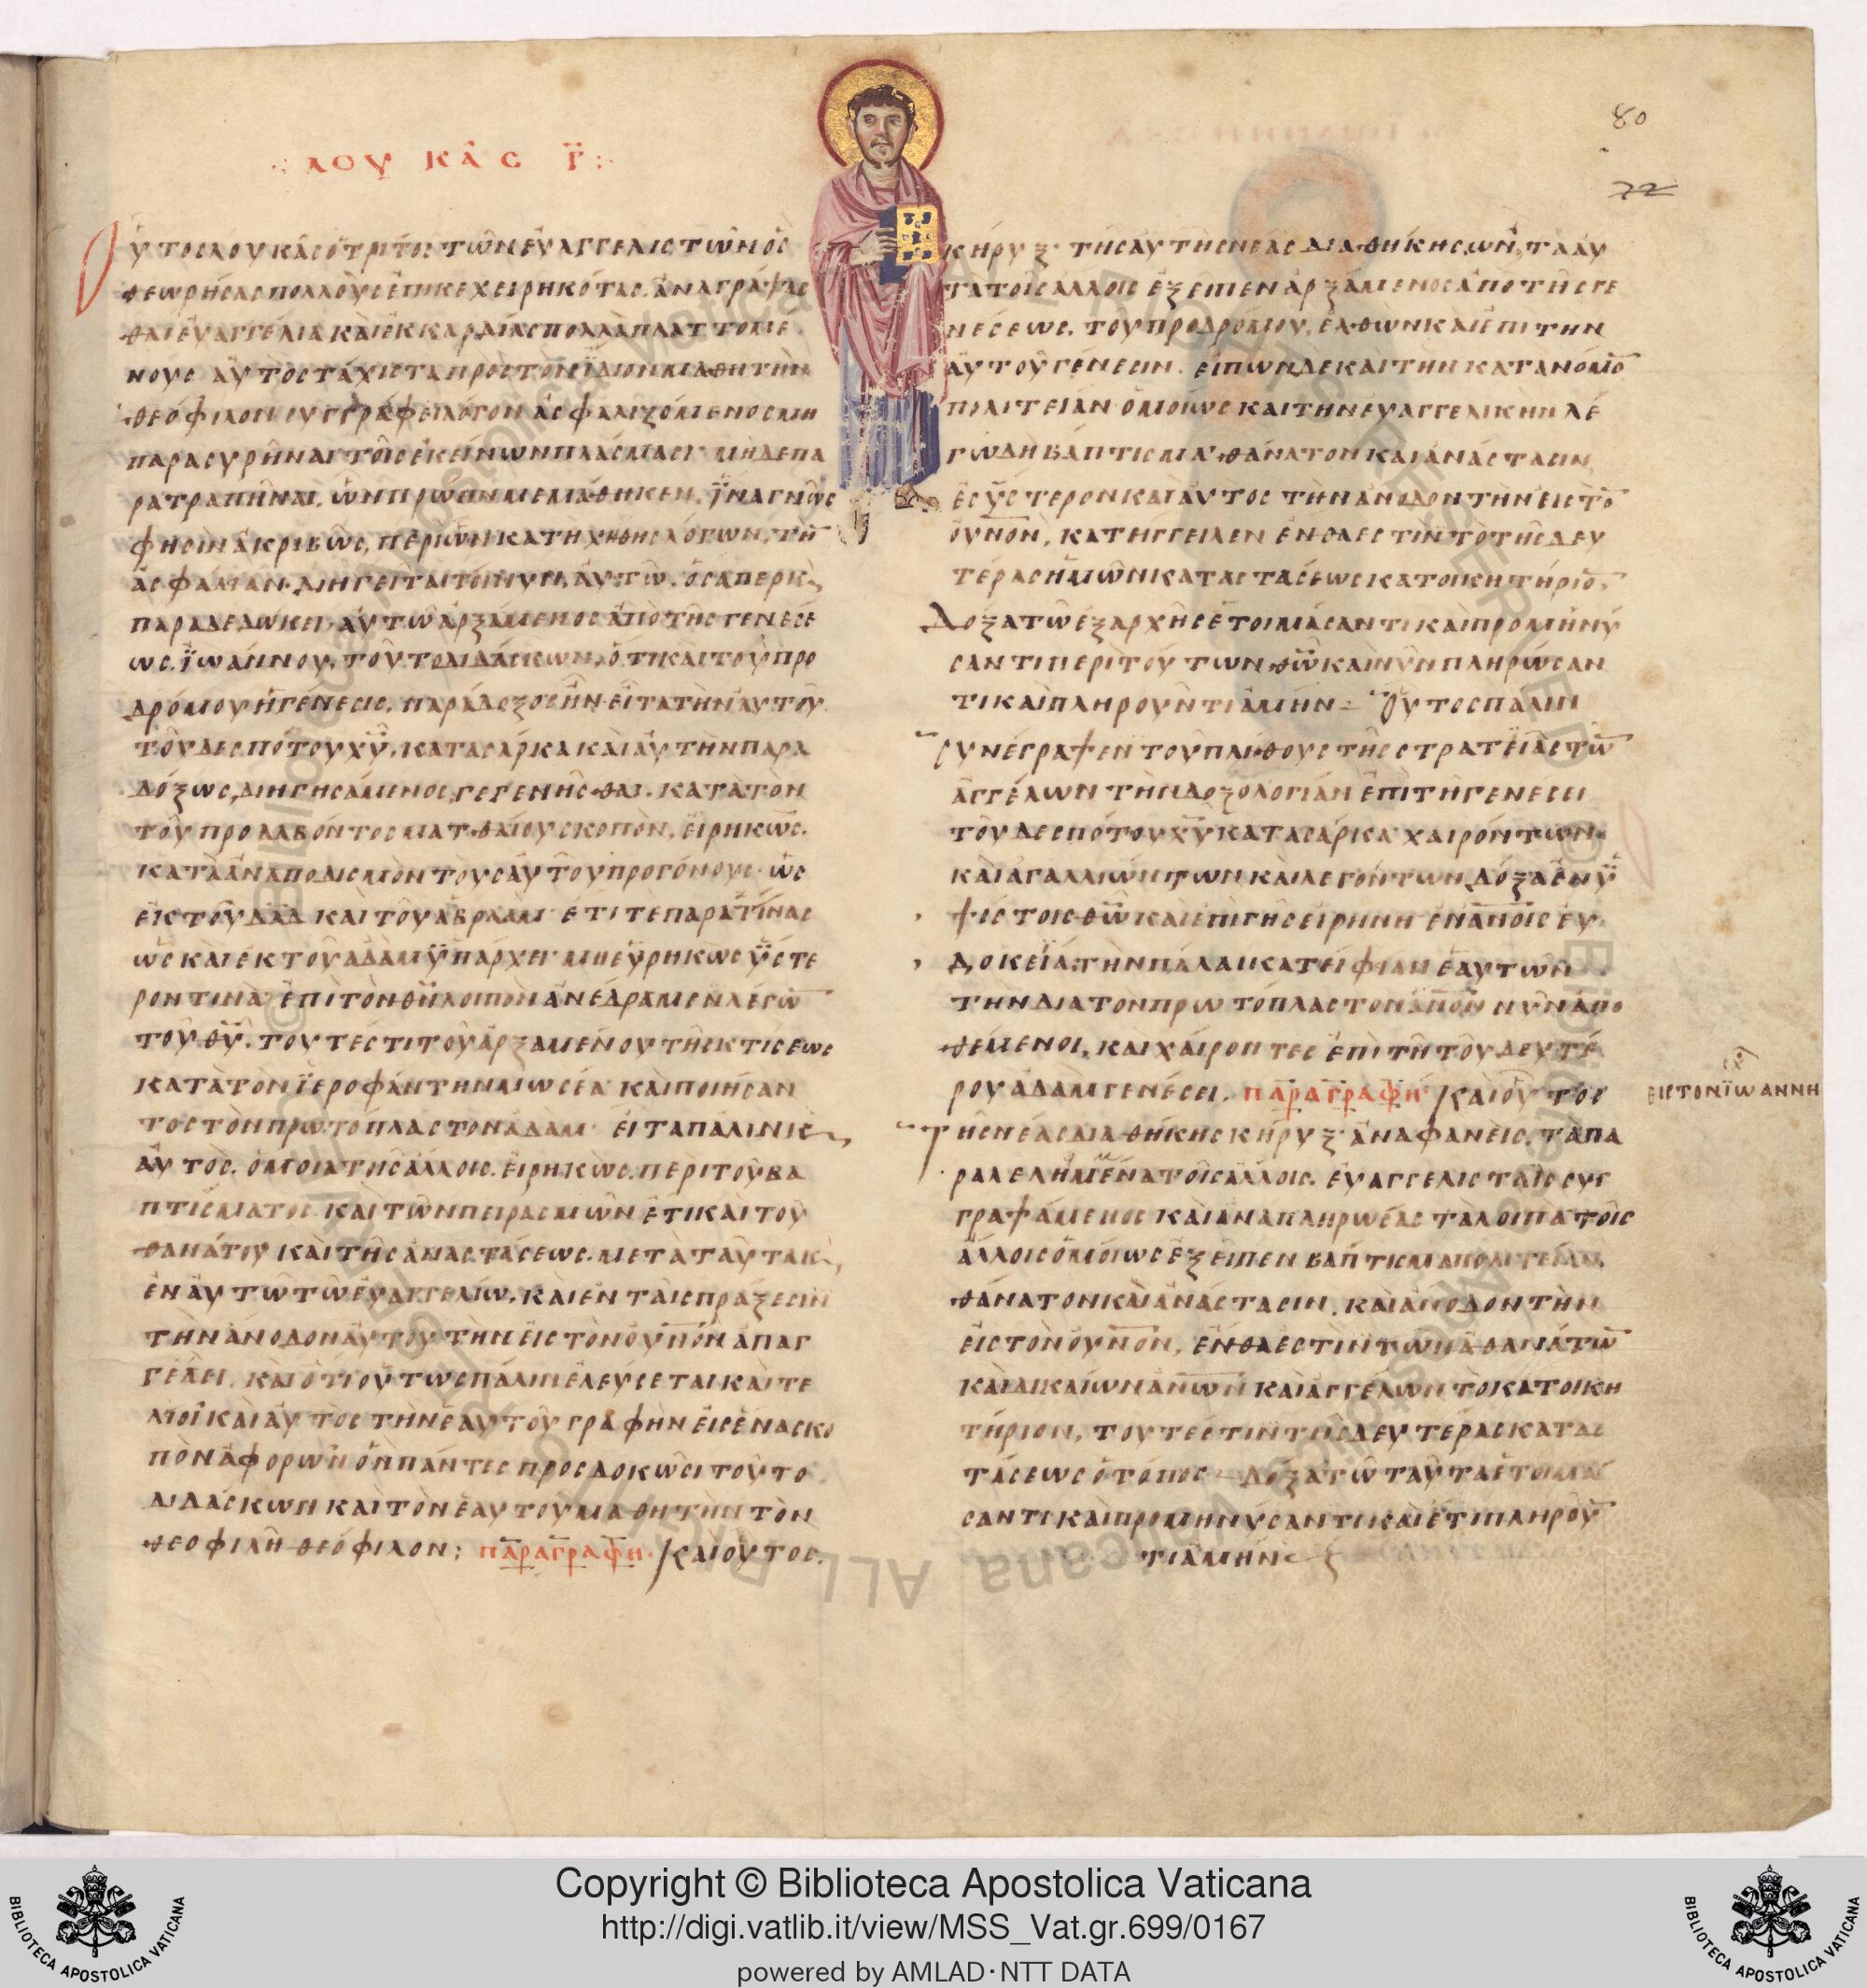 80
72
·:· ΛΟΥΚΑС Γ̅ :·
Οὗτος Λουκᾶς ὁ τρίτος τῶν εὐαγγελιστῶν ὃς
θεωρήσας πολλοὺς ἐπικεχειρηκότας ἀναγράψας
θαι εὐαγγέλια καὶ ἐκ καρδίας πολλὰ πλαττομέ
νους αὐτὸς τάχιστα πρὸς τὸν ἴδιον μαθητὴν
Θεόφιλον συγγράφει λόγον ἀσφαλιζόμενος μὴ
παρασυρῆναι τοῖς ἐκείνων πλάσμασι μηδὲ πα
ρατραπῆναι, ὧν πρώην μεμάθηκεν, ἵνα γνῷς
φησιν ἀκριβῶς, περὶ ὧν κατηχήθης λόγων, τὴ
ἀσφάλιαν· διηγεῖται τοίνυν, αὐτῷ, ὅσαπερ κ,
παραδεδώκει· αὐτῷ ἀρξάμενος ἀπὸ τῆς γενέσε
ως Ἰωάννου, τοῦτο διδάσκων, ὅτι καὶ τοῦ προ
δρόμου ἡ γένεσις, παράδοξος ἦν· εἶτα τὴν αὐτοῦ
τοῦ δεσπότου χ̅υ̅, κατὰ σάρκα καὶ αὐτὴν παρα
δόξως, διηγησάμενος, γεγενῆσθαι. κατὰ τὸν
τοῦ προλαβόντος Ματθαίου σκοπὸν, εἰρηκὼς.
κατὰ ἀναποδισμὸν τοὺς αὐτοῦ προγόνους· ὡς
ἐκ τοῦ δ̅α̅δ̅ καὶ τοῦ ἀβραάμ· ἔτι τε παρατίνας
ὡς καὶ ἐκ τοῦ ἀδὰμ ὑπάρχει· μὴ εὑρηκὼς ὕστε
ρον τινὰ ἐπὶ τὸν θ̅ν̅ λοιπὸν ἀνέδραμεν λέγω
τοῦ θ̅υ̅. τουτέστι τοῦ ἀρξαμένου τῆς κτίσεως
κατὰ τὸν ἱεροφάντην Μωσέα καὶ ποιήσαν
τος τὸν πρωτόπλαστον Ἀδάμ· εἶτα πάλιν κ,
αὐτὸς. ὅμοια τῆς ἄλλοις. εἰρηκὼς. περὶ τοῦ βα
πτίσματος καὶ τῶν πειρασμῶν ἔτι καὶ τοῦ
θανάτου καὶ τῆς ἀναστάσεως. μετὰ ταῦτα κ,
ἐν αὐτῷ τῷ εὐαγγελίῳ. καὶ ἐν ταῖς πράξεσιν
τὴν ἄνοδον αὐτοῦ τὴν εἰς τὸν ου̅ν̅ο̅ν̅ ἀπαγ
γέλει. καὶ ὅτι οὕτως πάλιν ἐλεύσεται καί τε
λιοῖ καὶ αὐτὸς τὴν ἑαυτοῦ γραφὴν εἰς ἕνα σκο
πὸν ἀφορῶν ὃν πάντες προσδοκῶσι τοῦτο
διδάσκων καὶ τὸν ἑαυτοῦ μαθητὴν τὸν
θεοφιλῆ Θεόφιλον; παραγραφή· Καὶ οὗτος.
κήρυξ· τῆς αὐτῆς νέας διαθήκης ὢν, τὰ αὐ
τὰ τοῖς ἄλλοις ἐξεῖπεν ἀρξάμενος ἀπὸ τῆς γε
νέσεως. τοῦ προδρόμου, ἐλθὼν καὶ ἐπὶ τὴν
αὐτοῦ γένεσιν. εἰπὼν δὲ καὶ τὴν κατὰ νόμο̅
πολιτείαν ὁμοίως καὶ τὴν εὐαγγελικὴν λέ
γω δὴ βάπτισμα· θάνατον καὶ ἀνάστασιν,
ἐς ὕστερον καὶ αὐτὸς τὴν ἄνοδον τὴν εἰς τὸ̅
ου̅ν̅ο̅ν̅, κατήγγειλεν ἔνθα ἐστὶν τὸ τῆς δευ
τέρας ἡμῶν καταστάσεως κατοικητήριο̅.
Δόξα τῷ ἐξ ἀρχῆς ἑτοιμάσαντι καὶ προμηνύ
σαντι περὶ τούτων θ̅ω̅ καὶ νῦν πληρώσαν
τι καὶ πληροῦντι ἀμήν— Οὗτος πάλιν
συνέγραψεν τοῦ πλήθους τῆς στρατείας τῶ̅
ἀγγέλων τὴν δοξολογίαν ἐπὶ τῇ γενέσει
τοῦ δεσπότου χ̅υ̅ κατὰ σάρκα χαιρόντων.
καὶ ἀγαλλιώντων καὶ λεγόντων δόξα ἐν ὑ
ψίστοις θ̅ω̅ καὶ ἐπὶ γῆς εἰρήνη ἐν α̅ν̅ο̅ι̅ς̅ εὐ
δοκεία· τὴν πάλαι κατείφιαν ἑαυτῶν
τὴν διὰ τὸν πρωτόπλαστον α̅ν̅ο̅ν̅ νῦν ἀπο
θέμενοι, καὶ χαίροντες ἐπὶ τῇ τοῦ δευτέ
ρου ἀδὰμ γενέσει. παραγραφή Καὶ οὗτος
τῆς νέας διαθήκης κήρυξ ἀναφανεὶς, τὰ πα
ραλελημένα τοῖς ἄλλοις. εὐαγγελισταῖς συγ
γραψάμενος καὶ ἀναπληρώσας τὰ λοιπὰ τοῖς
ἄλλοις ὁμοίως ἐξεῖπεν βάπτισμα πολιτείαν,
θάνατον καὶ ἀνάστασιν. καὶ ἄνοδον τὴν
εἰς τὸν ου̅ν̅ο̅ν̅, ἔνθα ἐστὶν τῶν ἀθανάτω̅
καὶ δικαίων α̅ν̅ω̅ν̅ καὶ ἀγγέλων τὸ κατοικη
τήριον, τουτέστιν τῆς δευτέρας κατασ
τάσεως ὁ τόπος — Δόξα τῷ ταῦτα ἑτοιμά
σαντι καὶ προμηνύσαντι καὶ ἔτι πληροῦ̅
τι ἀμήν
εἰς τὸν ἰωάννη
Copyright © Biblioteca Apostolica Vaticana
http://digi.vatlib.it/view/MSS_Vat.gr.699/0167
powered by AMLAD·NTT DATA
BIBLIOTECA APOSTOLICA VATICANA
BIBLIOTECA APOSTOLICA VATICANA